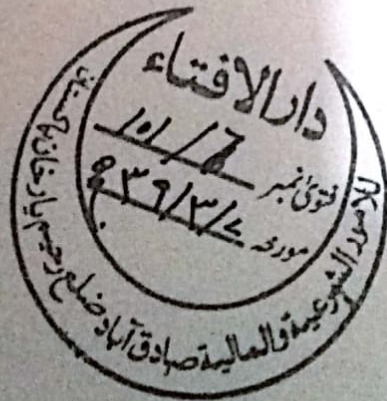 دارالافتاء
فتویٰ نمبر
مورخہ ۳۹/۳/۷
للامور الشرعیة والمالیة صادق آباد ضلع رحیم یار خان پاکستان